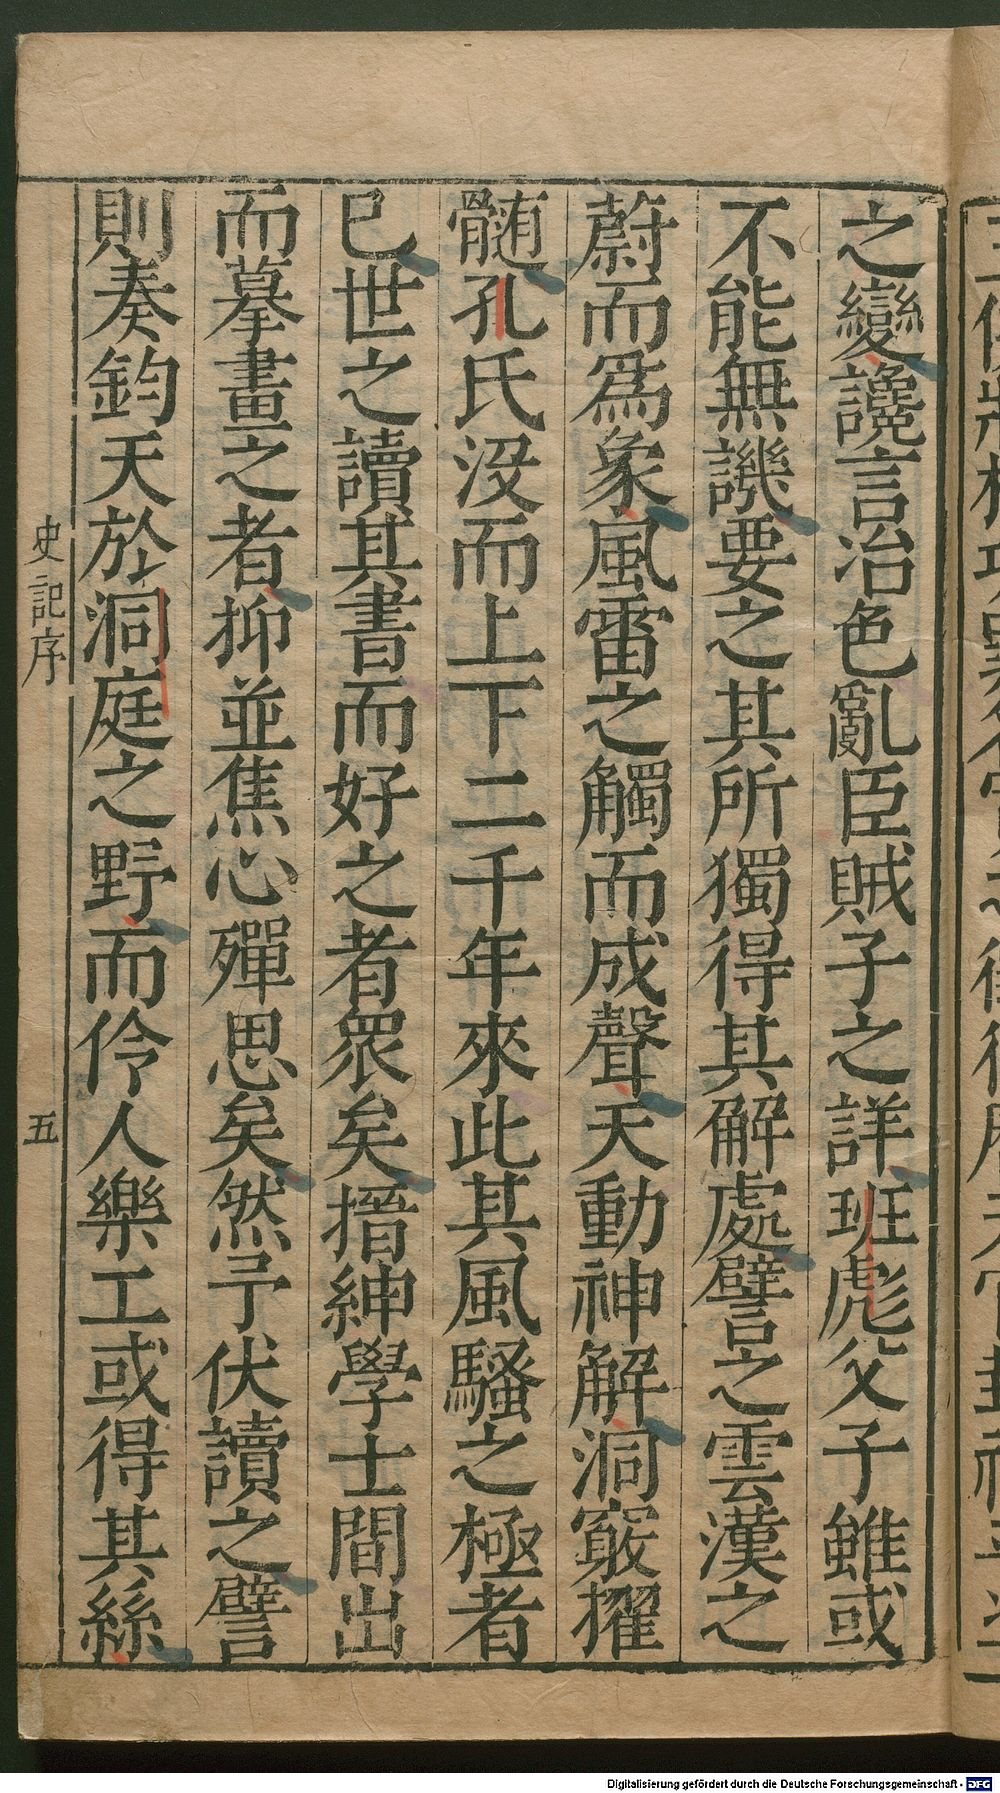 之變讒言冶色亂臣賊子之詳班彪父子雖或
不能無譏要之其所獨得其解處譬之雲漢之
蔚而為象風雷之觸而成聲天動神解洞竅擢
髓孔氏没而上下二千年來此其風騷之極者
已世之讀其書而好之者眾矣搢紳學士間出
而摹畫之者抑並焦心殫思矣然予伏讀之譬
則奏鈞天於洞庭之野而伶人樂工或得其絲
史記序
五
Digitalisierung gefördert durch die Deutsche Forschungsgemeinschaft - DFG